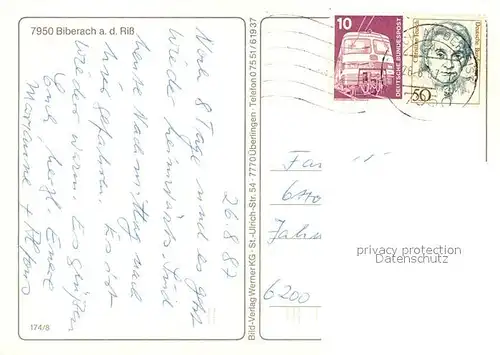 7950 Biberach a. d. Riß
26.8.87
Noch 8 Tage und es geht
wieder heimwärts. Sind
heute Nachmittag nach
hier gefahren. Es ist
wieder warm. Es grüßen
Euch herzl. Eure
Marianne + Alfons
174/8
Bild-Verlag Werner KG · St.-Ulrich-Str. 54 · 7770 Überlingen · Telefon 07551/61937
10
DEUTSCHE BUNDESPOST
50
Fam
Otto
Jahn
6200
privacy protection
Datenschutz